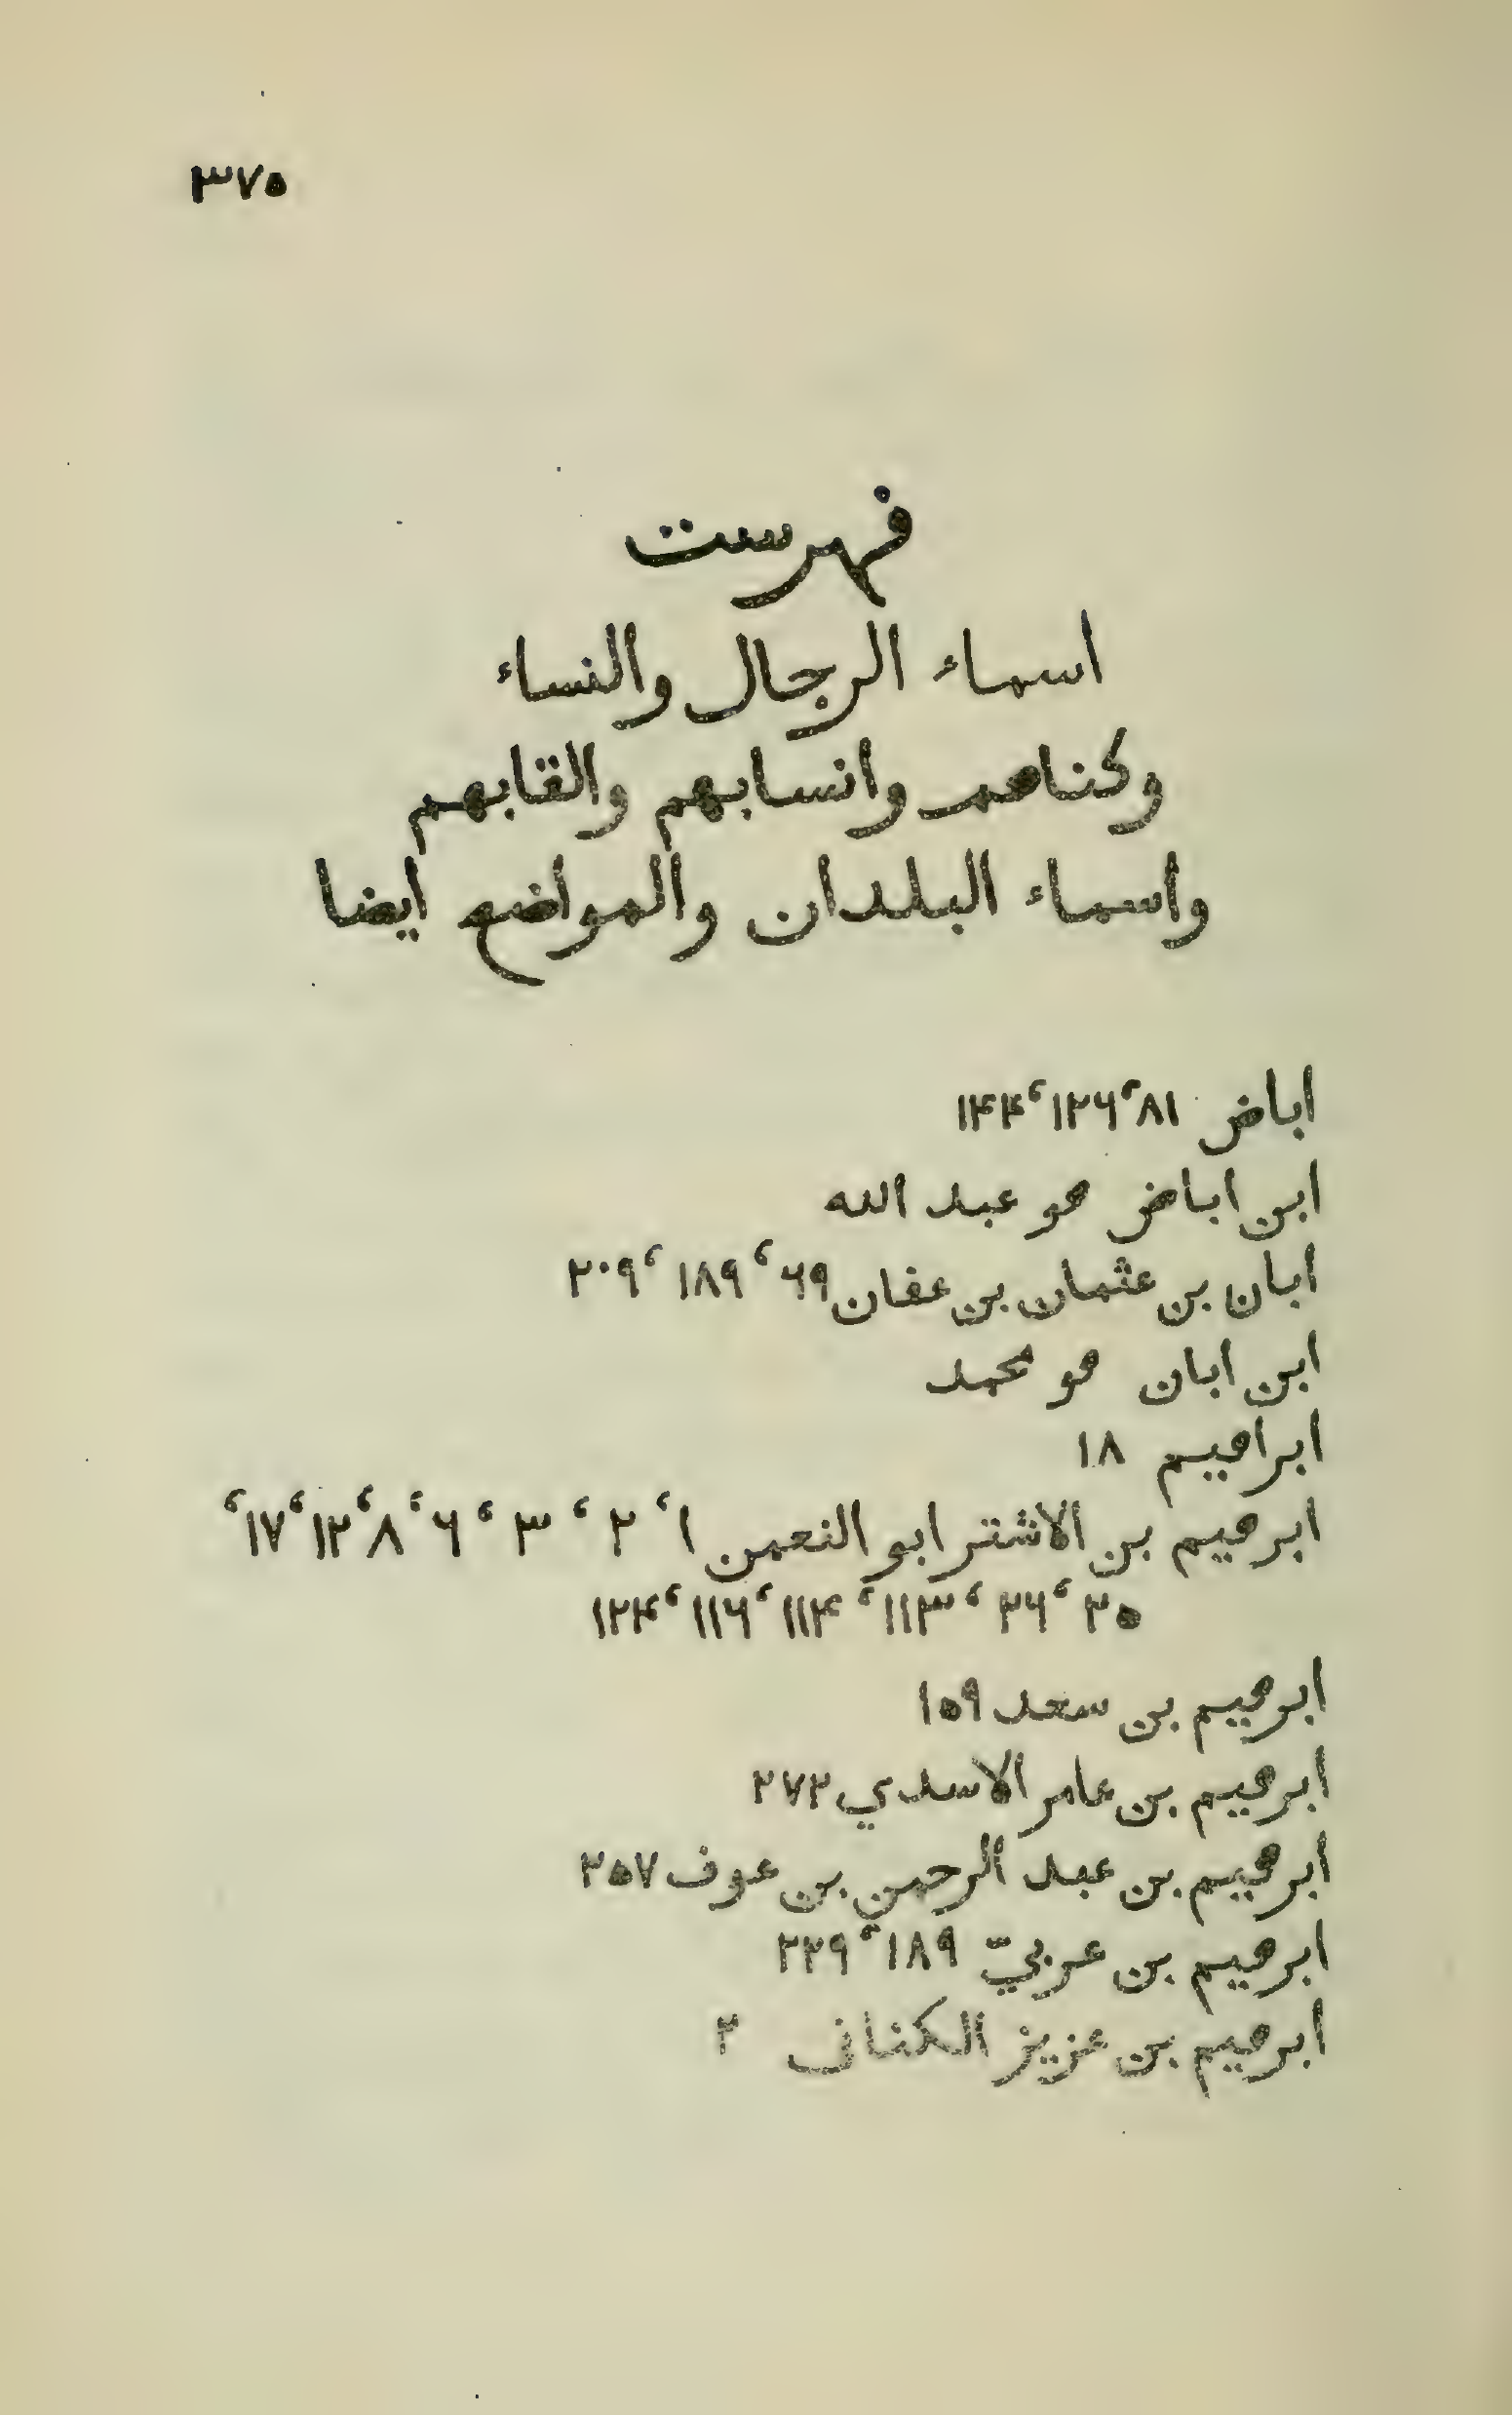 ٣٧٥
فهرست
اسماء الرجال والنساء
وكناهم وانسابهم والقابهم
واسماء البلدان والمواضع ايضا
اباض ٨١، ١٢٦، ١٤٤
ابن اباض هو عبد الله
ابان بن عثمان بن عفان ٦٩، ١٨٩، ٢٠٩
ابن ابان هو محمد
ابراهيم ١٨
ابرهيم بن الاشتر ابو النعمن ١، ٢، ٣، ٦، ٨، ١٢، ١٧،
٢٥، ٢٦، ١١٣، ١١٤، ١١٦، ١٢٤
ابرهيم بن سعد ١٥٩
ابرهيم بن عامر الاسدي ٢٧٢
ابرهيم بن عبد الرحمن بن عوف ٢٥٧
ابرهيم بن عربيّ ١٨٩، ٢٣٩
ابرهيم بن عزيز الكنانى ٢